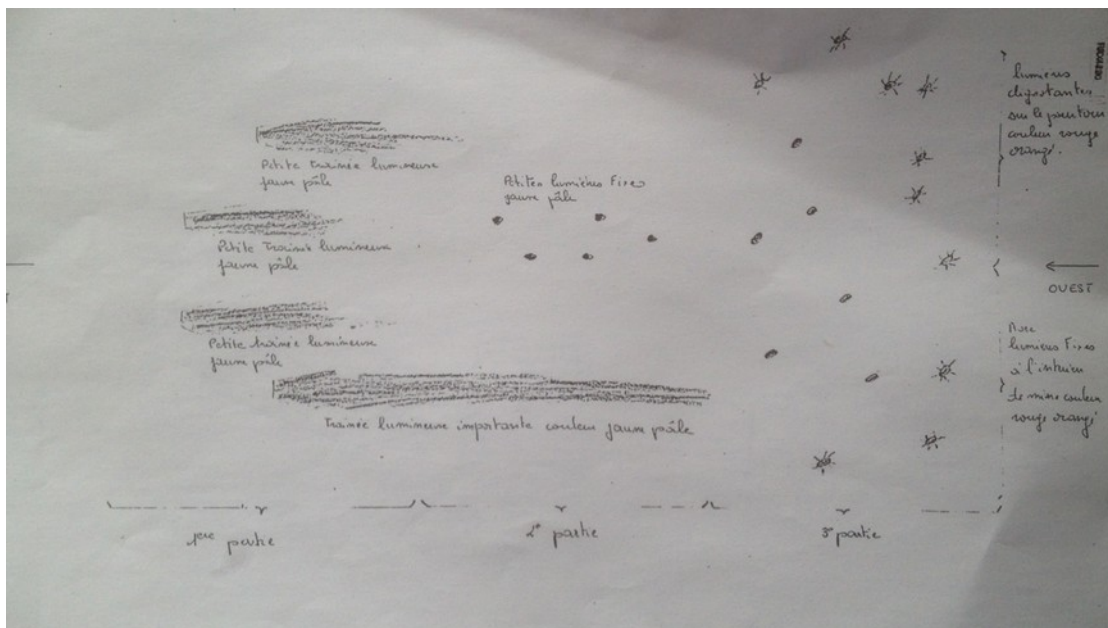 Petite trainée lumineuse
jaune pâle
Petite trainée lumineuse
jaune pâle
Petite trainée lumineuse
jaune pâle
Trainée lumineuse importante couleur jaune pâle
Petites lumières Fixes
jaune pâle
lumières
clignotantes
sur le pourtour
couleur rouge
orangé.
OUEST
lumières Fixes
à l'intérieur
de même couleur
rouge orangé
1ere partie
2e partie
3e partie